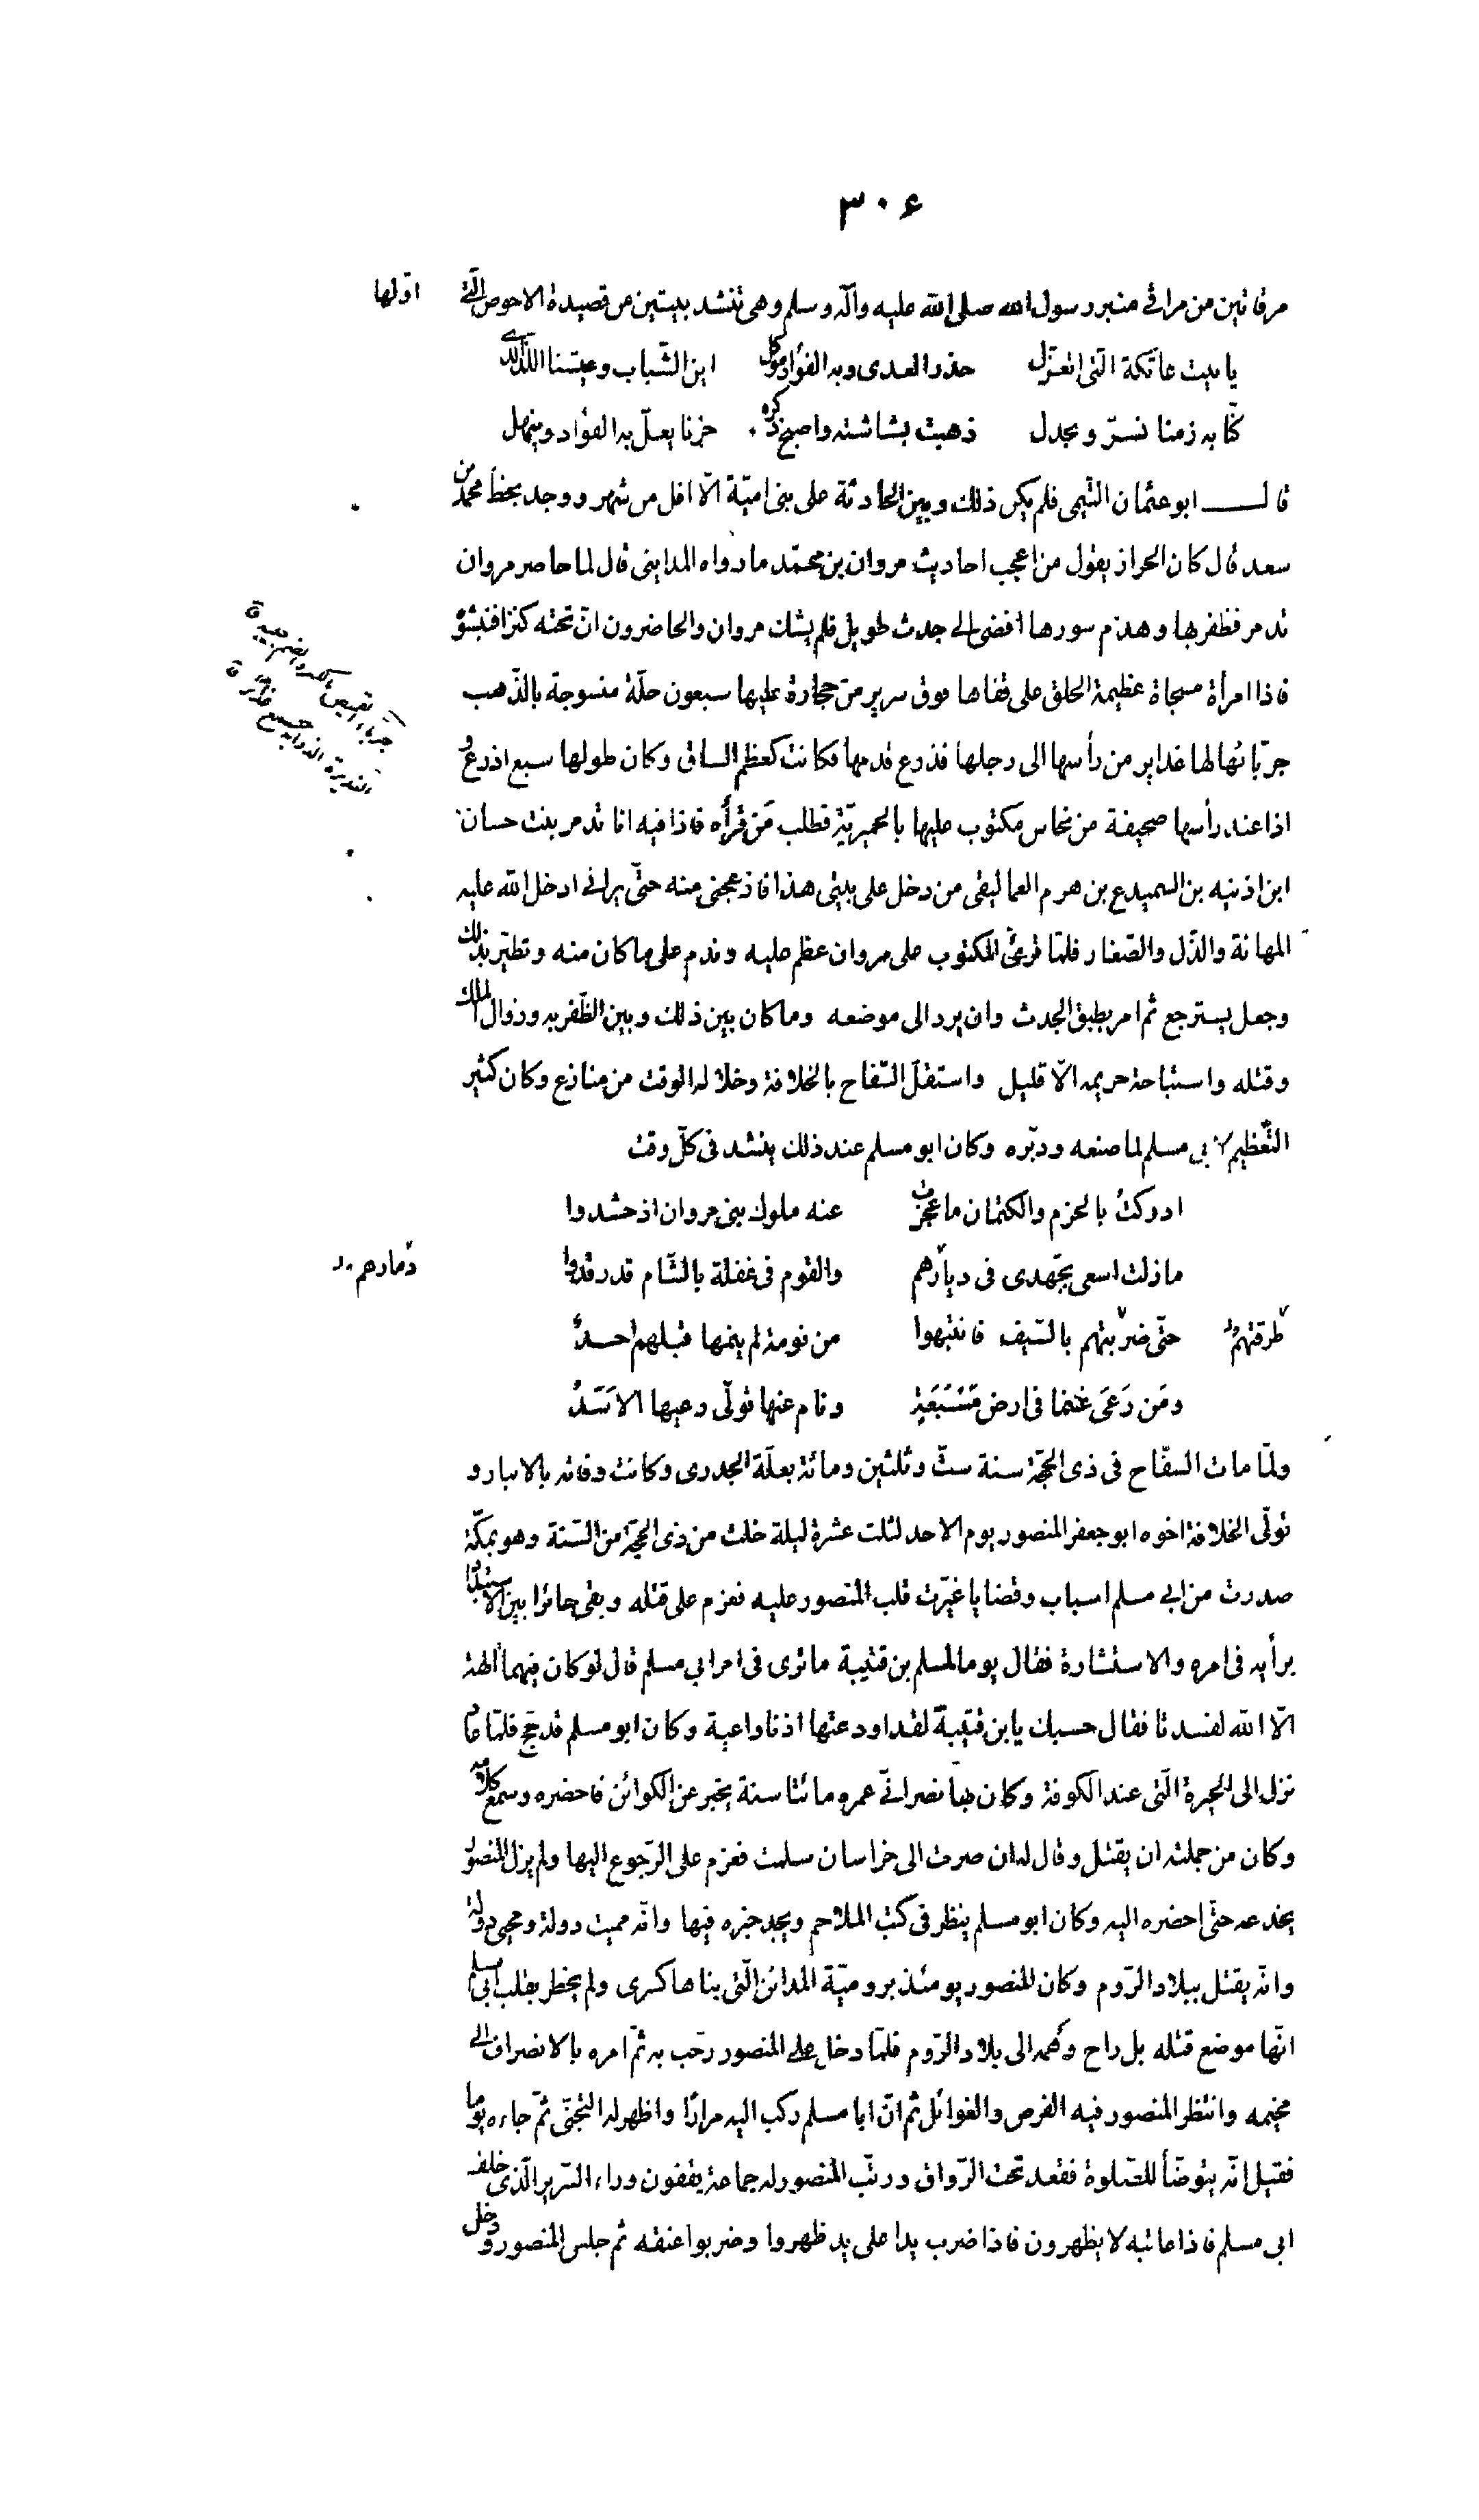 ٣٠۶
مرقاتين من مراقي منبر رسول الله صلى الله عليه وآله وسلم وهى تنشد بيتين من قصيدة الاحوص الّتى اوّلها
يا بيت عاتكة الّتى اتعزّل حذر العدى وبه الفؤاد موكل اين الشّباب وعيشنا اللذّ الّذى
كنّا به زمنا نسرّ ونجدل ذهبت بشاشته واصبح ذكره حزنا يعلّ به الفؤاد وينهل
قال ابو عثمان التّيمى فلم يكن ذلك وبين الحادثة على بنى اميّة الّا اقل من شهر ووجد بخطّ محمد بن
سعد قال كان الحراز يقول من اعجب احاديث مروان بن محمّد ما رواه المداينى قال لما حاصر مروان
تدمر فظفر بها وهدم سورها افضى الى جدث طويل فلم يشك مروان والحاضرون انّ تحته كنزا فنبشوه
فاذا امرأة مسجاة عظيمة الخلق على قفاها فوق سرير من حجارة عليها سبعون حلّة منسوجة بالذّهب
جربّانها لها غداير من رأسها الى رجلها فذرع قدمها فكانت كعظم الساق وكان طولها سبع اذرع و
اذا عند رأسها صحيفة من نحاس مكتوب عليها بالحميريّة فطلب مَن قرأه فاذا فيه انا تدمر بنت حسان
ابن اذينه بن السميدع بن هرم العماليقى من دخل على بيتى هذا فازعجنى منه حتّى يرانى ادخل الله عليه
المهانة والذّل والصّغار فلمّا قرئ المكتوب على مروان عظم عليه وندم على ما كان منه وتطيّر بذلك
وجعل يسترجع ثم امر بطبق الجدث وان يرد الى موضعه وما كان بين ذلك وبين الظّفر به وزوال الملك
وقتله واستباحة حريمه الّا قليل واستقلّ السّفاح بالخلافة وخلا له الوقت من منازع وكان كثير
التّعظيم لابى مسلم لما صنعه ودبّره وكان ابو مسلم عند ذلك ينشد فى كلّ وقت
ادركتُ بالحزم والكتمان ما عجزت عنه ملوك بنى مروان اذ حشدوا
ما زلت اسعى بجّهدى فى ديارهم والقوم فى غفلة بالشّام قد رقدوا دمارهم
طرقتهم حتّى ضربتهم بالسّيف فانتبهوا من نومة لم ينمها قبلهم احدٌ
ومَن رَعَى غنما فى ارض مَسْبَعَةٍ ونام عنها تولّى رعيها الاَسَدُ
ولمّا مات السفّاح فى ذى الحجّة سنة ستّ وثلثين ومائة بعلّة الجدرى وكانت وفاته بالانبار و
تولّى الخلافة اخوه ابو جعفر المنصور يوم الاحد لثلث عشرة ليلة خلت من ذى الحجّة من السّنة وهو بمكّة
صدرت من ابي مسلم اسباب وقضايا غيّرت قلب المنصور عليه فعزم على قتله وبقى حائرا بين الاستبداد
برأيه فى امره والاستشارة فقال يوما لمسلم بن قتيبة ما ترى فى امر ابي مسلم قال لو كان فيهما الهة
الّا الله لفسدتا فقال حسبك يابن قتيبة لقد اودعتها اذنا واعية وكان ابو مسلم قد حجّ فلمّا عاد
نزل الى الحيرة الّتى عند الكوفة وكان بها نصرانيّ عمره مائتا سنة يخبر عن الكوائن فاحضره وسمع كلامه
وكان من جملته ان يقتل وقال له ان صرت الى خراسان سلمت فعزم على الرّجوع اليها ولم يزل المنصور
يخدعه حتّى احضره اليه وكان ابو مسلم ينظر فى كتب الملاحم ويجد خبره فيها وانّه مميت دولة ومحيى دولة
وانّه يقتل ببلاد الرّوم وكان المنصور يومئذ برومّية المدائن الّتى بناها كسرى ولم يخطر بقلب ابي مسلم
انّها موضع قتله بل راح وهمه الى بلاد الرّوم فلمّا دخل على المنصور رحّب به ثمّ امره بالانصراف الى
مخيمه وانتظر المنصور فيه الفرص والغوائل ثم انّ ابا مسلم ركب اليه مرارًا واظهر له التّجنّى ثمّ جاءه يوما
فقيل انّه يتوضّأ للصّلوة فقعد تحت الرّواق ورتّب المنصور له جماعة يقفون وراء السّرير الّذى خلف
ابى مسلم فاذا عاتبه لا يظهرون فاذا ضرب يدا على يد ظهروا وضربوا عنقه ثم جلس المنصور ودخل